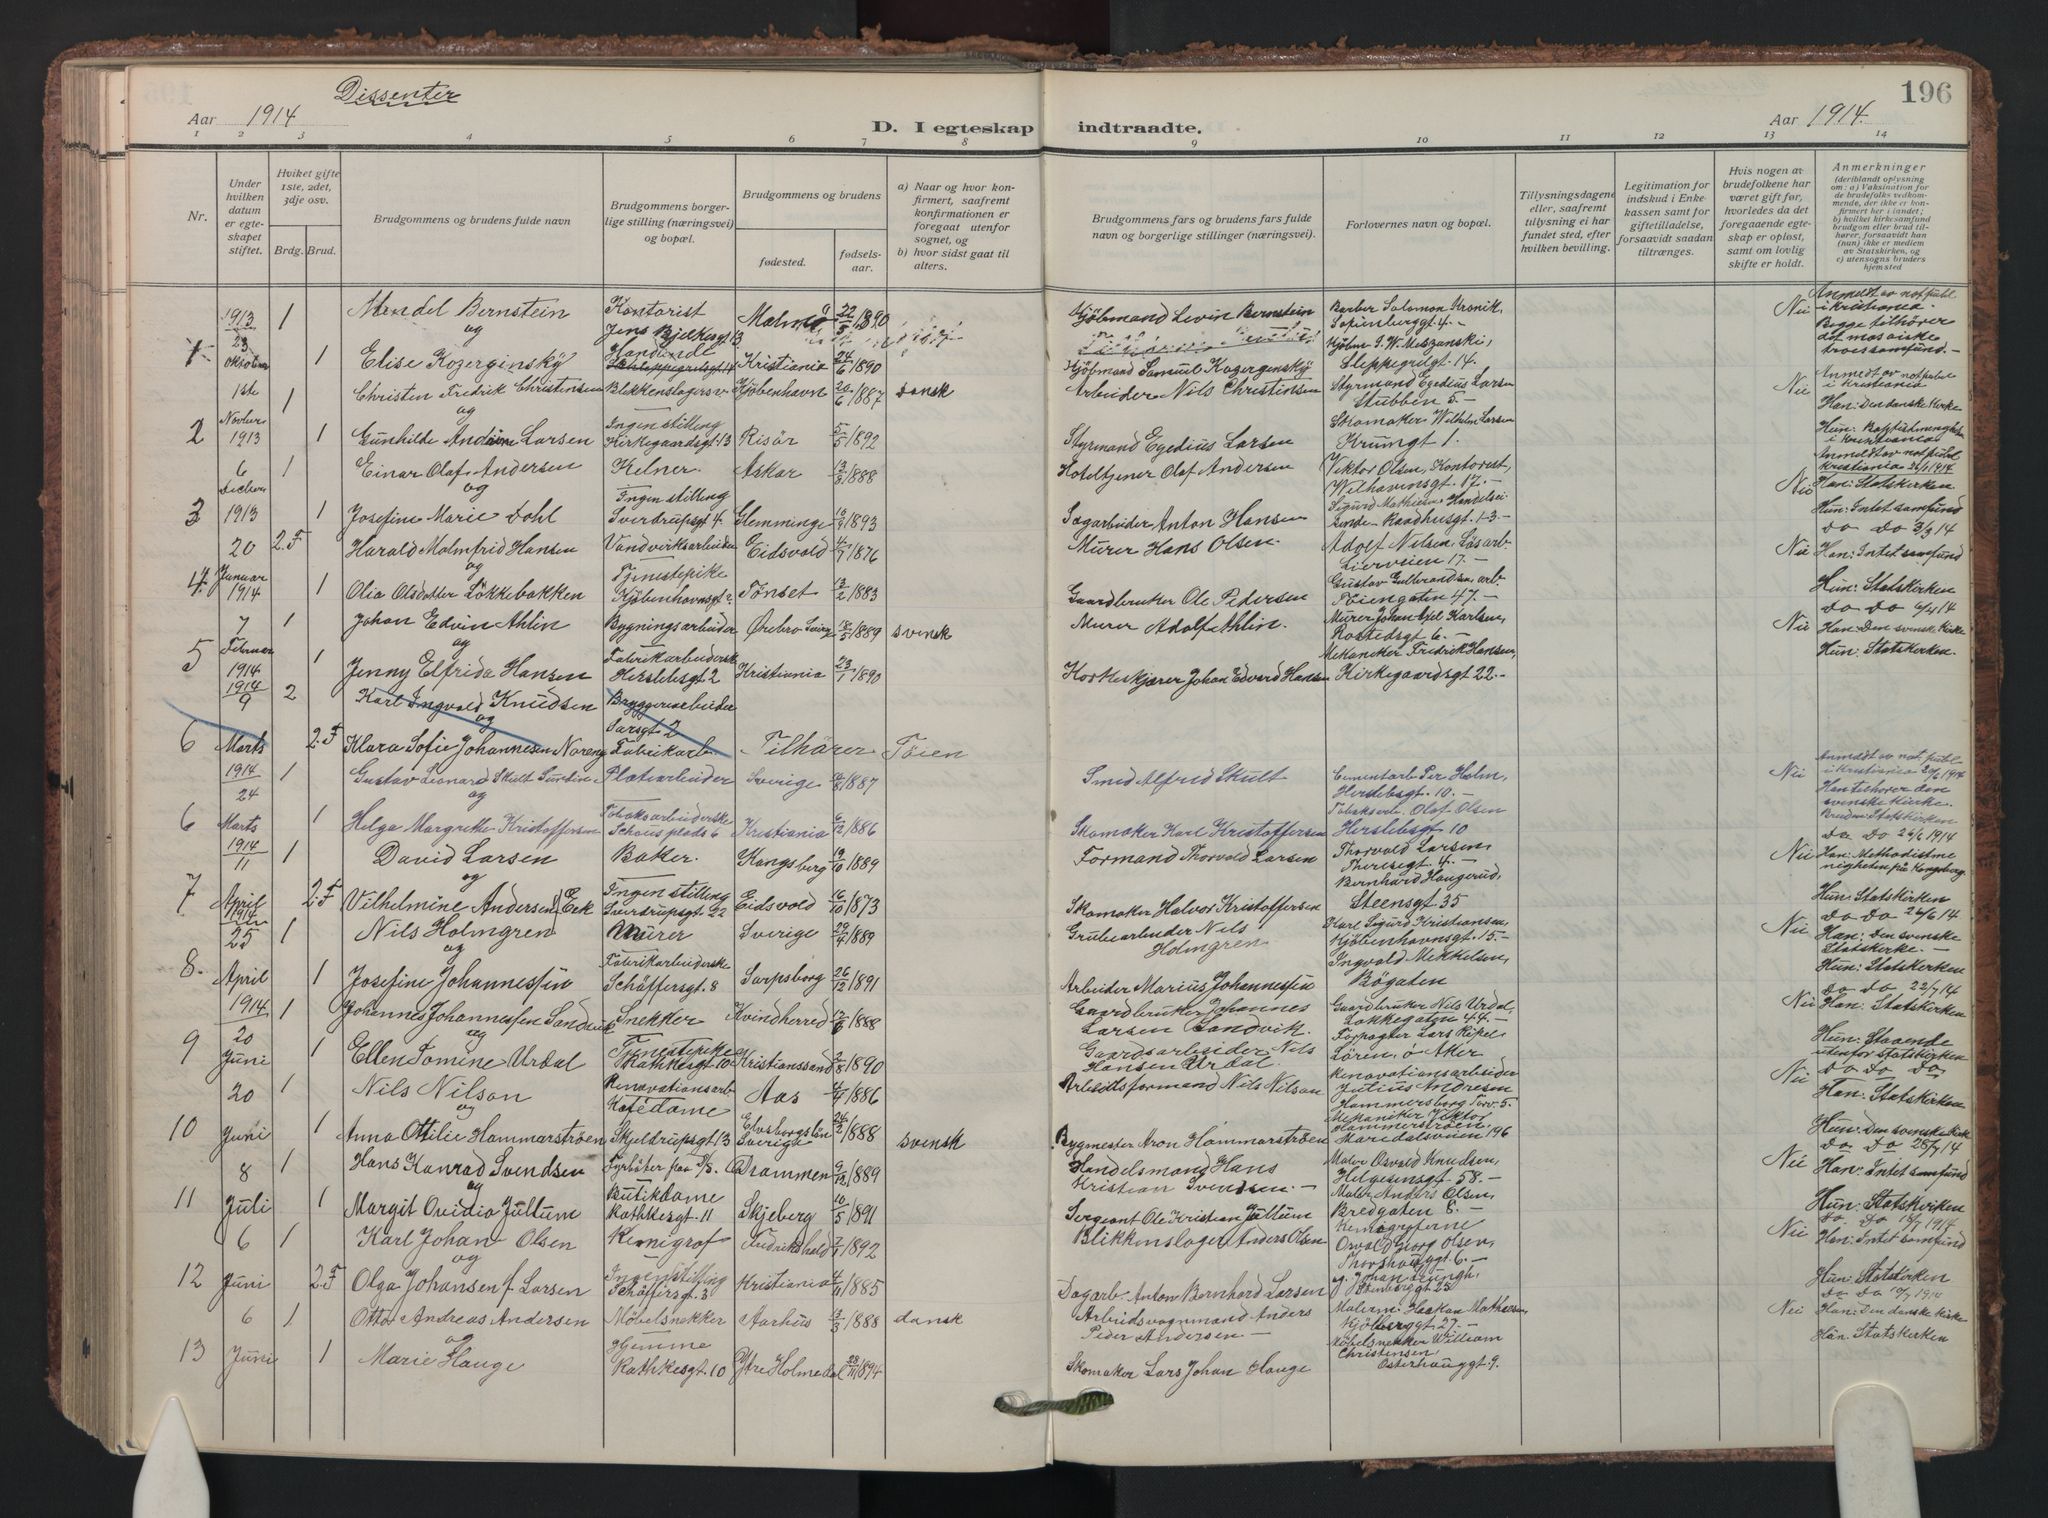 Dissenter
Aar 1914
D. I egteskap indtraadte.
Aar 1914.
196
1 2 3 4 5 6 7 8 9 10 11 12 13 14
Nr.
Under hvilken datum er egteskapet stiftet.
Hviket gifte 1ste, 2det, 3dje osv.
Brdg. Brud.
Brudgommens og brudens fulde navn
Brudgommens borgerlige stilling (næringsvei) og bopæl.
Brudgommens og brudens
fødested.
fødselsaar.
a) Naar og hvor konfirmert, saafremt konfirmationen er foregaat utenfor sognet, og
b) hvor sidst gaat til alters.
Brudgommens fars og brudens fars fulde navn og borgerlige stillinger (næringsvei).
Forlovernes navn og bopæl.
Tillysningsdagene eller, saafremt tillysning ei har fundet sted, efter hvilken bevilling.
Legitimation for indskud i Enkekassen samt for giftetilladelse, forsaavidt saadan tiltrænges.
Hvis nogen av brudefolkene har været gift før, hvorledes da det foregaaende egteskap er opløst, samt om lovlig skifte er holdt.
Anmerkninger
(deriblandt oplysning om: a) Vaksination for de brudefolks vedkommende, der ikke er konfirmert her i landet; b) hvilket kirkesamfund brudgom eller brud tilhører, forsaavidt han (hun) ikke er medlem av Statskirken, og c) utensogns bruders hjemsted
1 1913 23 Oktober 1 Mendel Bernstein Kontorist Jens Bjelkesgt 13 Malmö 22/5 1890 Kjöbmand Levin Bernstein Barber Solomon Kronik, Sofienberggt 4. Nei Anmeldt av not publ i Kristiania
og Begge tilhörer det mosaiske troessamfund.
1 Elise Kozerginský Handlende Kristiania 24/6 1890 Kjöbmand Samuel Kozerginský Kjöbm J. W. Meszanski, Sleppegrelgt 14.
2 1ste Novber 1913 1 Christen Fredrik Christensen Blikkenslagersv Kjöbenhavn 20/6 1887 dansk Arbeider Nils Christensen Styrmand Egedius Larsen Stubben 5. Nei Anmeldt av not publ i Kristiania Han: Den danske Kirke
og
1 Gunhilde Andrine Larsen Ingen stilling Kirkegaardsgt 13 Risör 5/5 1892 Styrmand Egedius Larsen Skomaker Wilhelm Larsen Krumgt 1. Hun: Baptistmenigheten i Kristiania
3 6 Decbem 1913 1 Einar Olaf Andersen Kelner. Asker 13/3 1888 Hoteltjener Olaf Andersen Viktor Olsen, Kontorist, Wilhavensgt. 17. Nei Anmeldt av not publ Kristiania 26/1 1914. Han: Statskirken.
og
1 Josefine Marie Dahl Ingen stilling Sverdrupsgt 4. Glemminge 16/9 1893 Sagarbeider Anton Hansen Sigurd Mathisen, Handelsei- Raadhusgt. 1-3. Hun: Intet samfund
4. 20 Januar 1914 2.F Harald Malmfrid Hansen Vandverksarbeider Eidsvold 4/7 1876 Murer Hans Olsen. Adolf Nilsen, Lösarb. Lierveien 17. Nei Do Do 3/3 14 Han: Intet samfund
og
1 Olia Olsdatter Lökkebakken Tjenestepike Kjöbenhavnsgt Tönset 13/2 1883 Gaardbruker Ole Pedersen Gustav Gulbrandsen, arb. Töiengaten 47. Hun: Statskirken
5 7 Februar 1914 1 Johan Edvin Ahlin Bygningsarbeider Örebro Sverige 18/5 1889 svensk Murer Adolf Ahlin. Murer Johan Axel Karlsen, Rostedsgt 6. Nei Do Do 6/4 14 Han: Den svenske Kirke
og
1 Jenny Elfrida Hansen Fabrikarbeiderske Herslebsgt 2 Kristiania 23/1 1890 Korkeskjærer Johan Edvard Hansen Mekaniker Fredrik Hansen, Kirkegaardsgt 22. Hun: Statskirken.
6 1914 9 Marts 2 Karl Ingvald Knudsen Bryggeriarbeider Sarsgt 2
og
2.F Klara Sofie Johannesen Noreng Fabrikarb Tilhörer Töien
6 1914 24 Marts 1 Gustav Leonard Skult Sundin Platearbeider Sverige 1887 Smed Alfred Skult Cementarb Per Holm, Herslebsgt. 10. Nei Anmeldt av not publ i Kristiania 20/6 1914 Han tilhörer den svenske kirke.
og
1 Helga Margrethe Kristoffersen Tobaksarbeiderske Schous plads 6 Kristiania 6/12 1886 Skomaker Karl Kristoffersen Tobaksarb. Olaf Olsen Herslebsgt 10 Bruden: Statskirken
7 1914 11 April 1 David Larsen Baker. Kongsberg 19/10 1889 Formand Thorvald Larsen Thorvald Larsen, Theresegt. 4. Nei Do Do 26/6 1914 Han: Methodistmenigheten på Kongsberg
og
2.F Vilhelmine Andersen f. Eek Ingen stilling Sverdrupsgt 22 Eidsvold 16/10 1873 Skomaker Halvor Kristoffersen Bernhard Haugerud, Steensgt 35 Hun: Statskirken
8. 1914 25 April 1 Nils Holmgren Murer Sverige 29/4 1889 Grubearbeider Nils Holmgren Karl Sigurd Kristiansen, Kjöbenhavnsgt. 15. Nei Do Do 26/6 14 Han: Den svenske Statskirke.
og
1 Josefine Johannessen Fabrikarbeiderske Schäffersgt. 8 Sarpsborg 26/12 1891 Arbeider Marius Johannessen Ingvald Mikkelsen, Bögaten Hun: Statskirken
9 1914 20 Juni 1 Johannes Johannessen Sandvik Snekker Kvindherred 17/6 1888 Gaardbruker Johannes Larsen Sandvik. Gaardbruker Nils Urdal, Lökkegaten 44. Nei Do Do 22/7 14 Han: Statskirken
og
1 Ellen Tomine Urdal Tjenestepike Rathkesgt 10 Kristianssand 2/8 1890 Gaardsarbeider Nils Hansen Urdal Forpagter Lars Ripel Lören, ö Aker Hun: Staaende utenfor statskirken
10 20 Juni 1 Nils Nilson Renovationsarb. Aas 4/4 1886 Arbeidsformand Nils Nilson Renovationsarbeider Julius Andresen Hammersborg Torv 5. Nei Do Do Do Han: Statskirken
og
1 Anna Ottilie Hammarströen Kafédame Skjeldrupsgt 13 Elvsborgslän Sverige 24/2 1888 svensk Bygmester Aron Hammarströen Mekaniker Viktor Hammerströen, Maridalsveien 196 Hun: Den svenske Kirke
11 8 Juli 1 Hans Konrad Svendsen Fyrböter paa D/S. Drammen 9/12 1889 Handelsmand Hans Kristian Svendsen. Maler Osvald Knudsen, Helgesensgt. 58. Nei Do Do 28/7 14 Han: Intet samfund
og
1 Margit Ovidia Jullum Butikdame Rathkesgt. 11 Skjeberg 10/5 1891 Sergeant Ole Kristian Jullum Maler Anders Olsen, Bredgaten 6. Hun: Statskirken
12 6 Juni 1 Karl Johan Olsen Kemigraf Fredrikshald 1892 Blikkenslager Anders Olsen Kemigraferne Osvald Georg Olsen, Thorshauggt 6. Nei Do Do 1914 Han: Intet samfund
og
2.F Olga Johansen f. Larsen Ingen stilling Schäffersgt. 3 Kristiania 4/11 1885 Dagarb. Anton Bernhard Larsen Stenberggt 25 Hun: Statskirken
13 6 Juni 1 Otto Andreas Andersen Möbelsnekker Aarhus 13/3 1888 dansk Arbeidsvognmand Anders Peder Andersen Malerm. Haakon Mathisen, Kjölberggt 27. Nei Do Do 10/7 1914 Han: Den danske Kirke
og
1 Marie Hauge Hjemme Rathkesgt. 10 Ytre Holmedal 28/11 1894 Skomaker Lars Johan Hauge Möbelsnekker William Christensen, Osterhauggt. 9. Hun: Statskirken